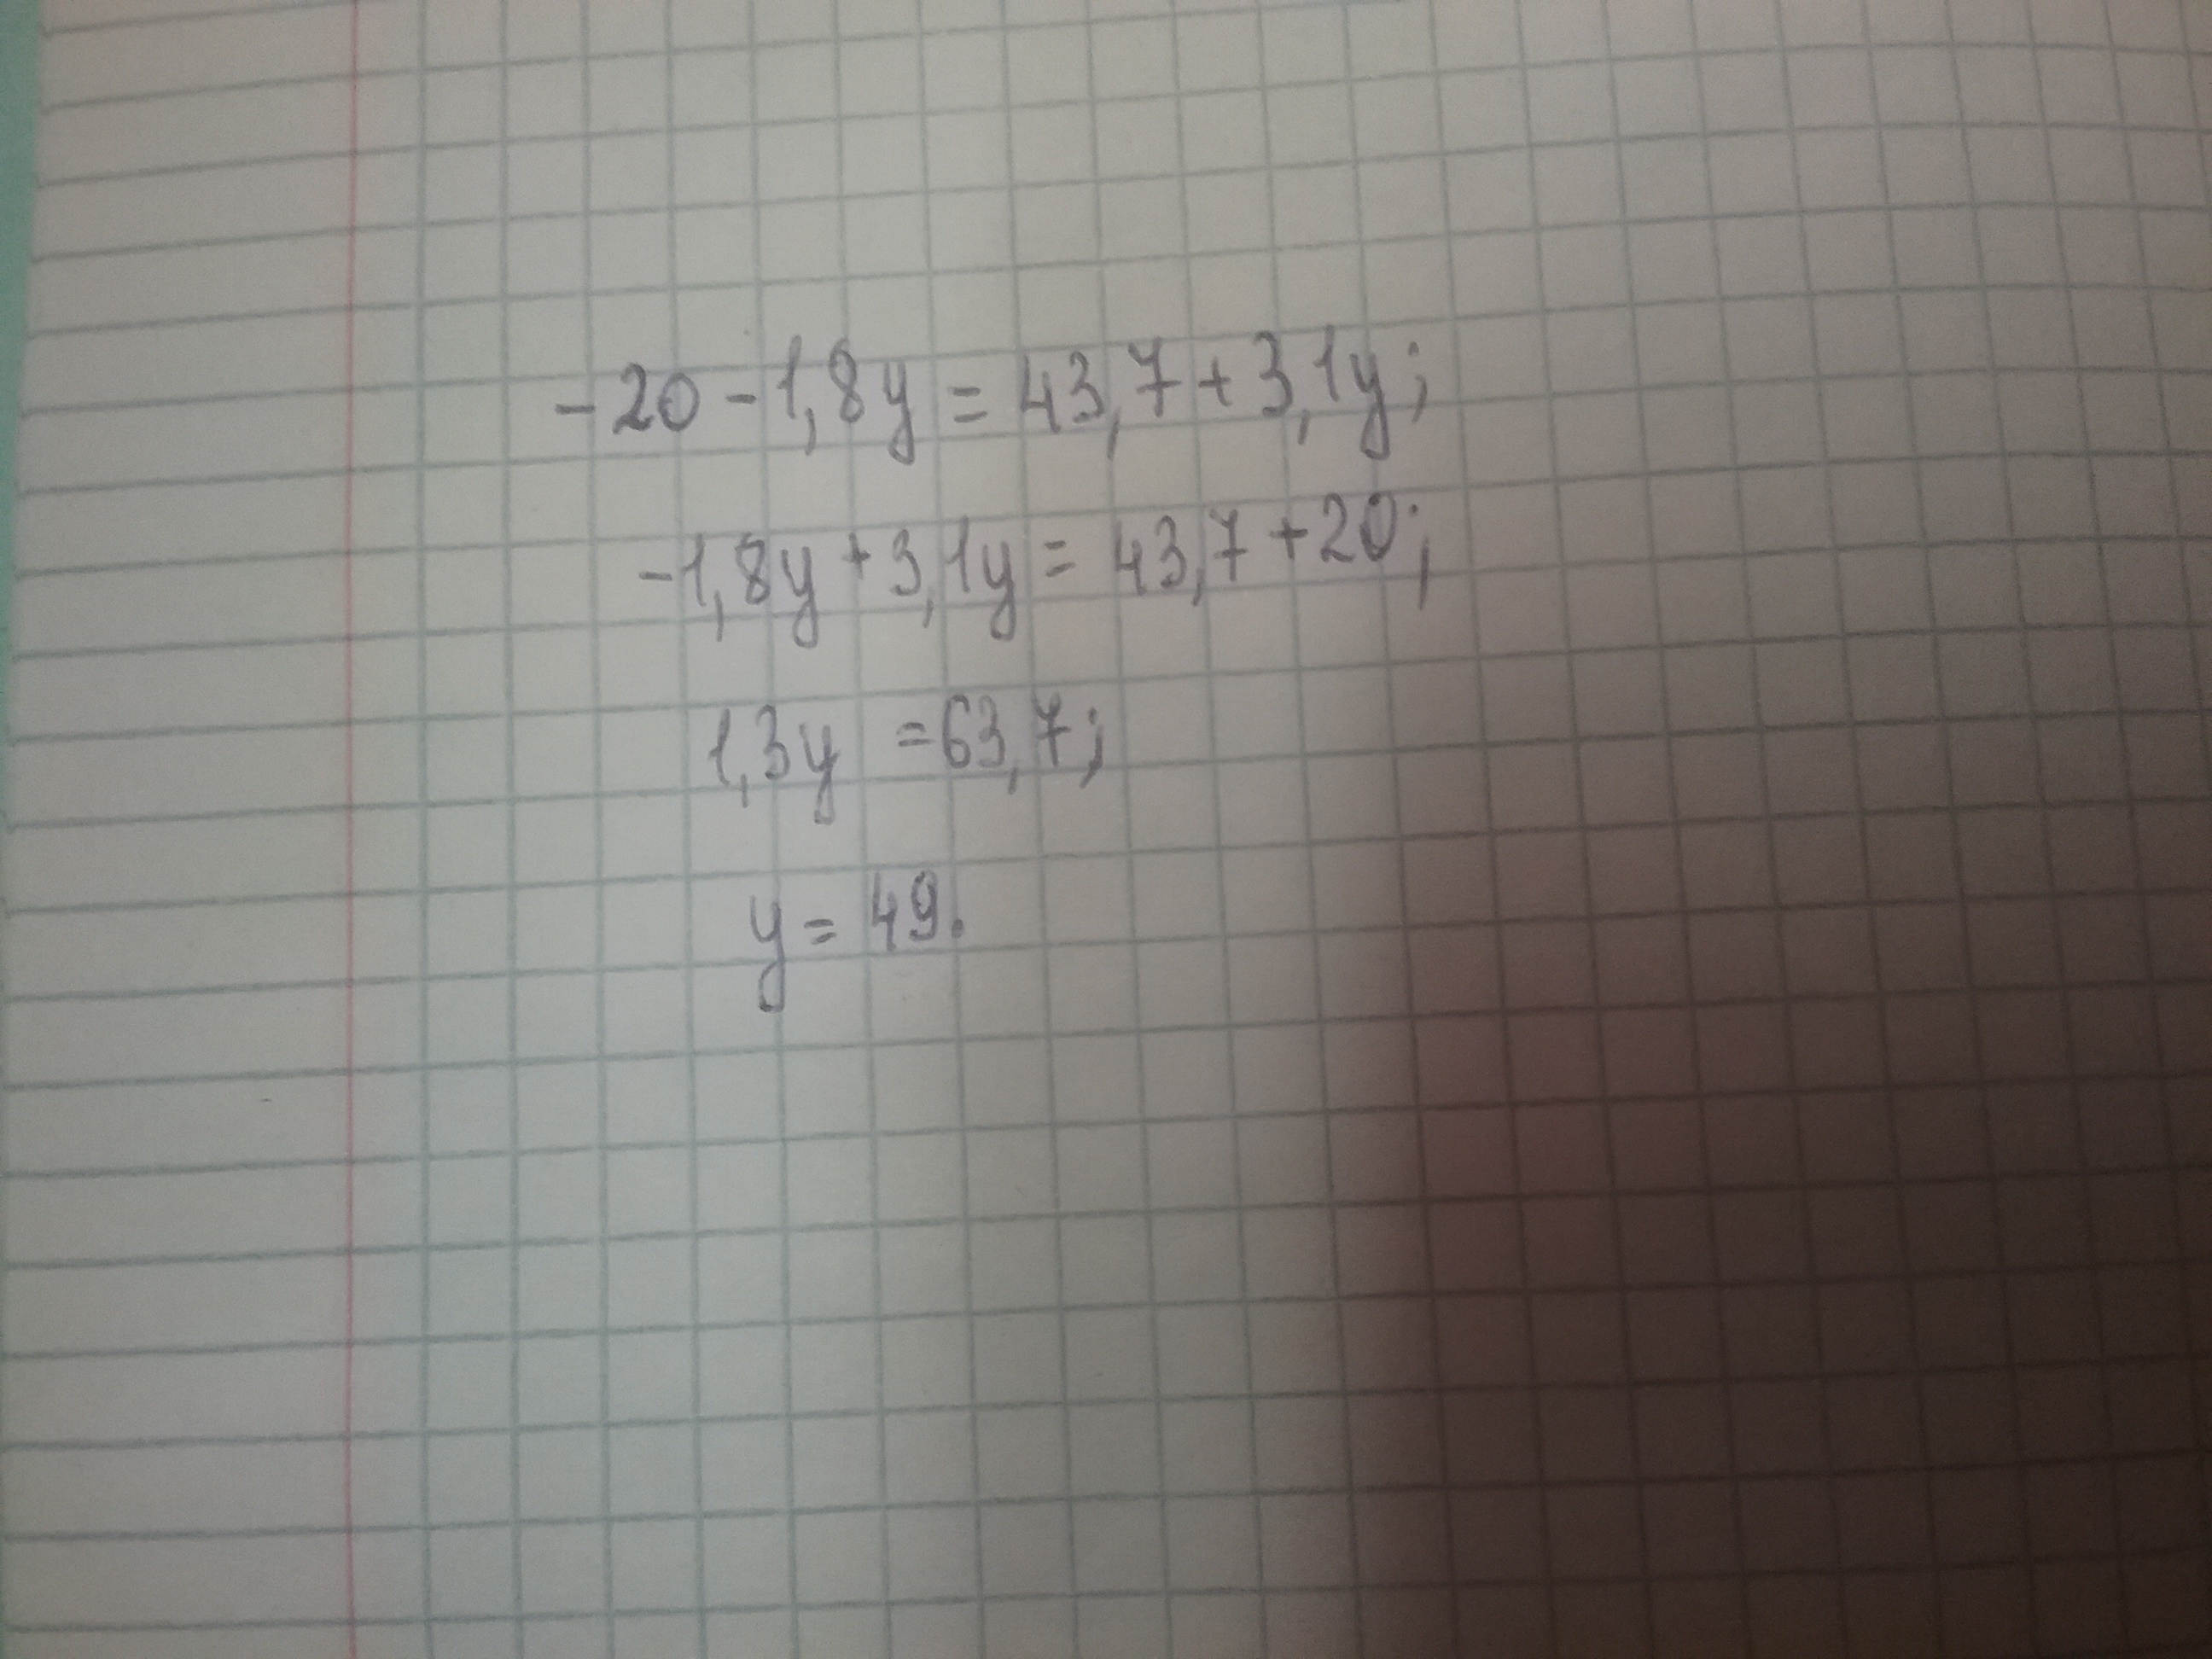 -20 - 1,8y = 43,7 + 3,1y;
-1,8y + 3,1y = 43,7 + 20;
1,3y = 63,7;
y = 49.